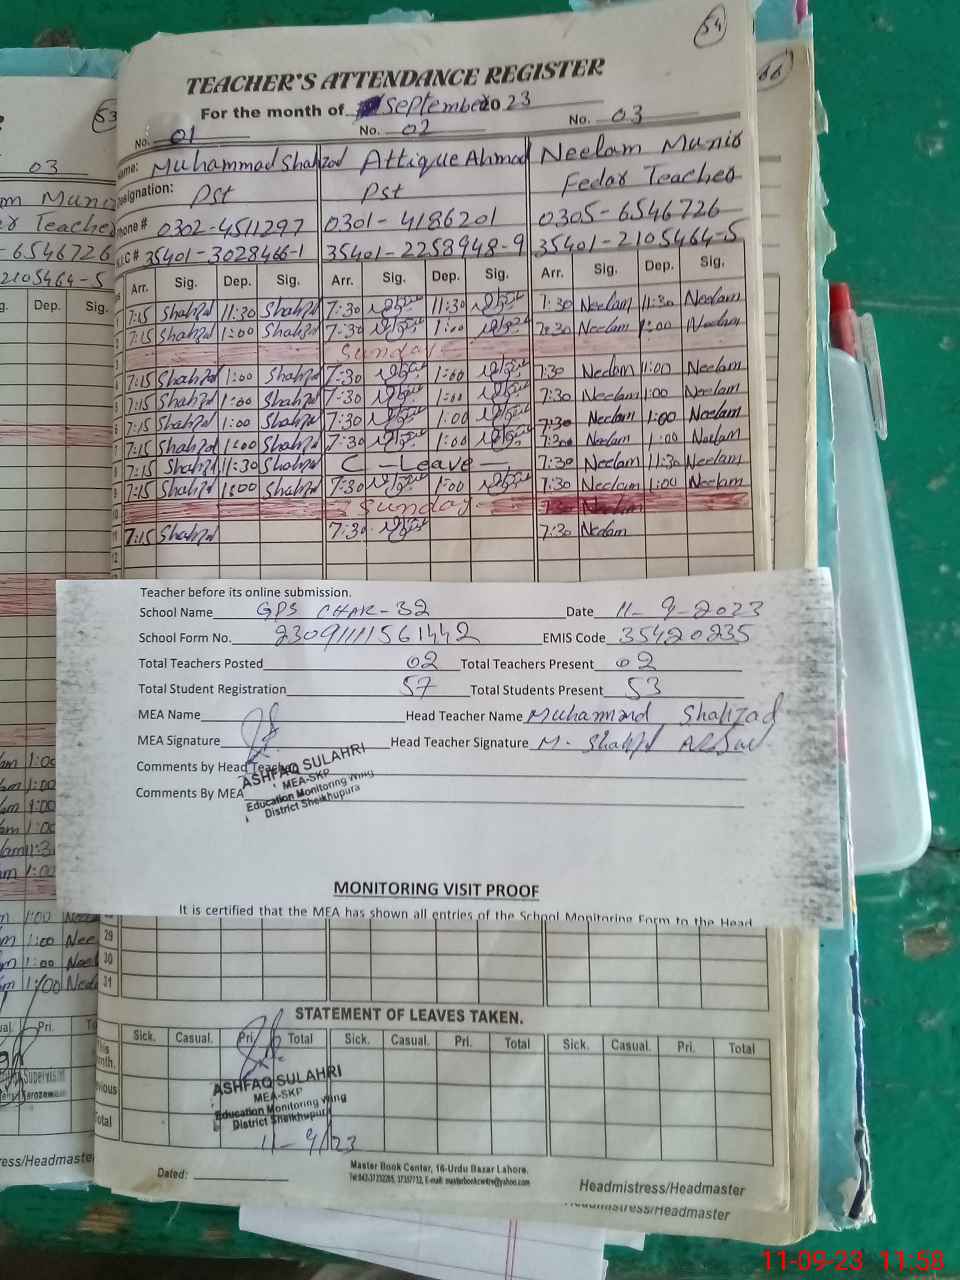 54
TEACHER'S ATTENDANCE REGISTER
For the month of September 2023
No. 01 No. 02 No. 03
Name: Muhammad Shahzad Attique Ahmad Neelam Munir
Designation: Pst Pst Fedar Teacher
Phone # 0302-4511297 0301-4186201 0305-6546726
N.I.C # 35401-3028466-1 35401-2258948-9 35401-2105464-5
Arr. Sig. Dep. Sig. Arr. Sig. Dep. Sig. Arr. Sig. Dep. Sig.
1 7:15 Shahzd 11:30 Shahzd 7:30 11:30 7:30 Neelam 11:30 Neelam
2 7:15 Shahzd 1:00 Shahzd 7:30 1:00 7:30 Neelam 1:00 Neelam
3 Sunday
4 7:15 Shahzd 1:00 Shahzd 7:30 1:00 7:30 Neelam 1:00 Neelam
5 7:15 Shahzd 1:00 Shahzd 7:30 1:00 7:30 Neelam 1:00 Neelam
6 7:15 Shahzd 1:00 Shahzd 7:30 1:00 7:30 Neelam 1:00 Neelam
7 7:15 Shahzd 1:00 Shahzd 7:30 1:00 7:30 Neelam 1:00 Neelam
8 7:15 Shahzd 11:30 Shahzd C - Leave - 7:30 Neelam 11:30 Neelam
9 7:15 Shahzd 1:00 Shahzd 7:30 1:00 7:30 Neelam 1:00 Neelam
10 Sunday 7:30 Neelam
11 7:15 Shahzd 7:30 7:30 Neelam
12
Teacher before its online submission.
School Name GPS CHAK-32 Date 11-9-2023
School Form No. 23091111561442 EMIS Code 35420235
Total Teachers Posted 02 Total Teachers Present 02
Total Student Registration 57 Total Students Present 53
MEA Name Head Teacher Name Muhammad Shahzad
MEA Signature Head Teacher Signature M. Shahzd
Comments by Head Teacher
Comments By MEA
ASHFAQ SULAHRI
MEA-SKP
Education Monitoring Wing
District Sheikhupura
MONITORING VISIT PROOF
It is certified that the MEA has shown all entries of the School Monitoring Form to the Head
29
30
31
STATEMENT OF LEAVES TAKEN.
Sick. Casual. Pri. Total Sick. Casual. Pri. Total Sick. Casual. Pri. Total
This Month.
Previous
Total
ASHFAQ SULAHRI
MEA-SKP
Education Monitoring Wing
District Sheikhupura
11-9/23
Dated:
Master Book Center, 16-Urdu Bazar Lahore.
Headmistress/Headmaster
Headmistress/Headmaster
53
03
6546726
2105464-5
Dep. Sig.
66
11-09-23 11:58